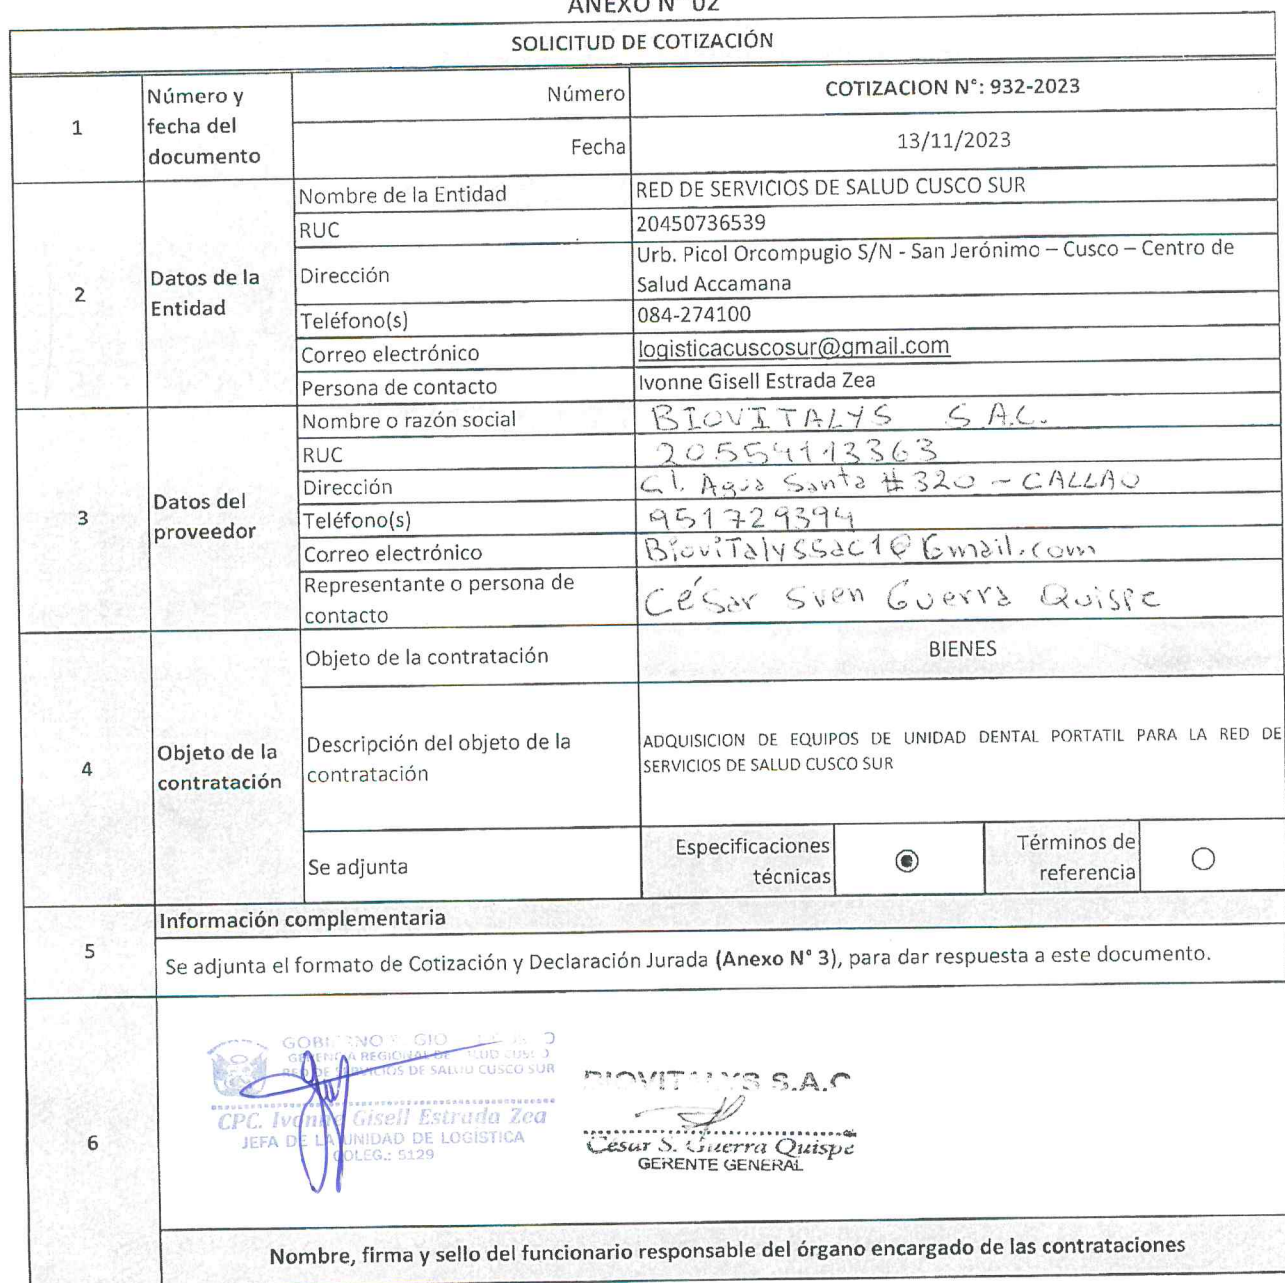 ANEXO N° 02
SOLICITUD DE COTIZACIÓN
1
Número y
fecha del
documento
Número
COTIZACION N°: 932-2023
Fecha
13/11/2023
2
Datos de la
Entidad
Nombre de la Entidad
RED DE SERVICIOS DE SALUD CUSCO SUR
RUC
20450736539
Dirección
Urb. Picol Orcompugio S/N - San Jerónimo – Cusco – Centro de
Salud Accamana
Teléfono(s)
084-274100
Correo electrónico
logisticacuscosur@gmail.com
Persona de contacto
Ivonne Gisell Estrada Zea
3
Datos del
proveedor
Nombre o razón social
BIOVITALYS S.A.C.
RUC
20554113363
Dirección
Cl. Agua Santa # 320 - CALLAO
Teléfono(s)
951729394
Correo electrónico
BioviTalyssac1@Gmail.com
Representante o persona de
contacto
César Sven Guerra Quispe
4
Objeto de la
contratación
Objeto de la contratación
BIENES
Descripción del objeto de la
contratación
ADQUISICION DE EQUIPOS DE UNIDAD DENTAL PORTATIL PARA LA RED DE
SERVICIOS DE SALUD CUSCO SUR
Se adjunta
Especificaciones
técnicas
Términos de
referencia
5
Información complementaria
Se adjunta el formato de Cotización y Declaración Jurada (Anexo N° 3), para dar respuesta a este documento.
6
GERENCIA REGIONAL DE SALUD CUSCO
RED DE SERVICIOS DE SALUD CUSCO SUR
CPC. Ivonne Gisell Estrada Zea
JEFA DE LA UNIDAD DE LOGÍSTICA
COLEG.: 5129
BIOVITALYS S.A.C
César S. Guerra Quispe
GERENTE GENERAL
Nombre, firma y sello del funcionario responsable del órgano encargado de las contrataciones